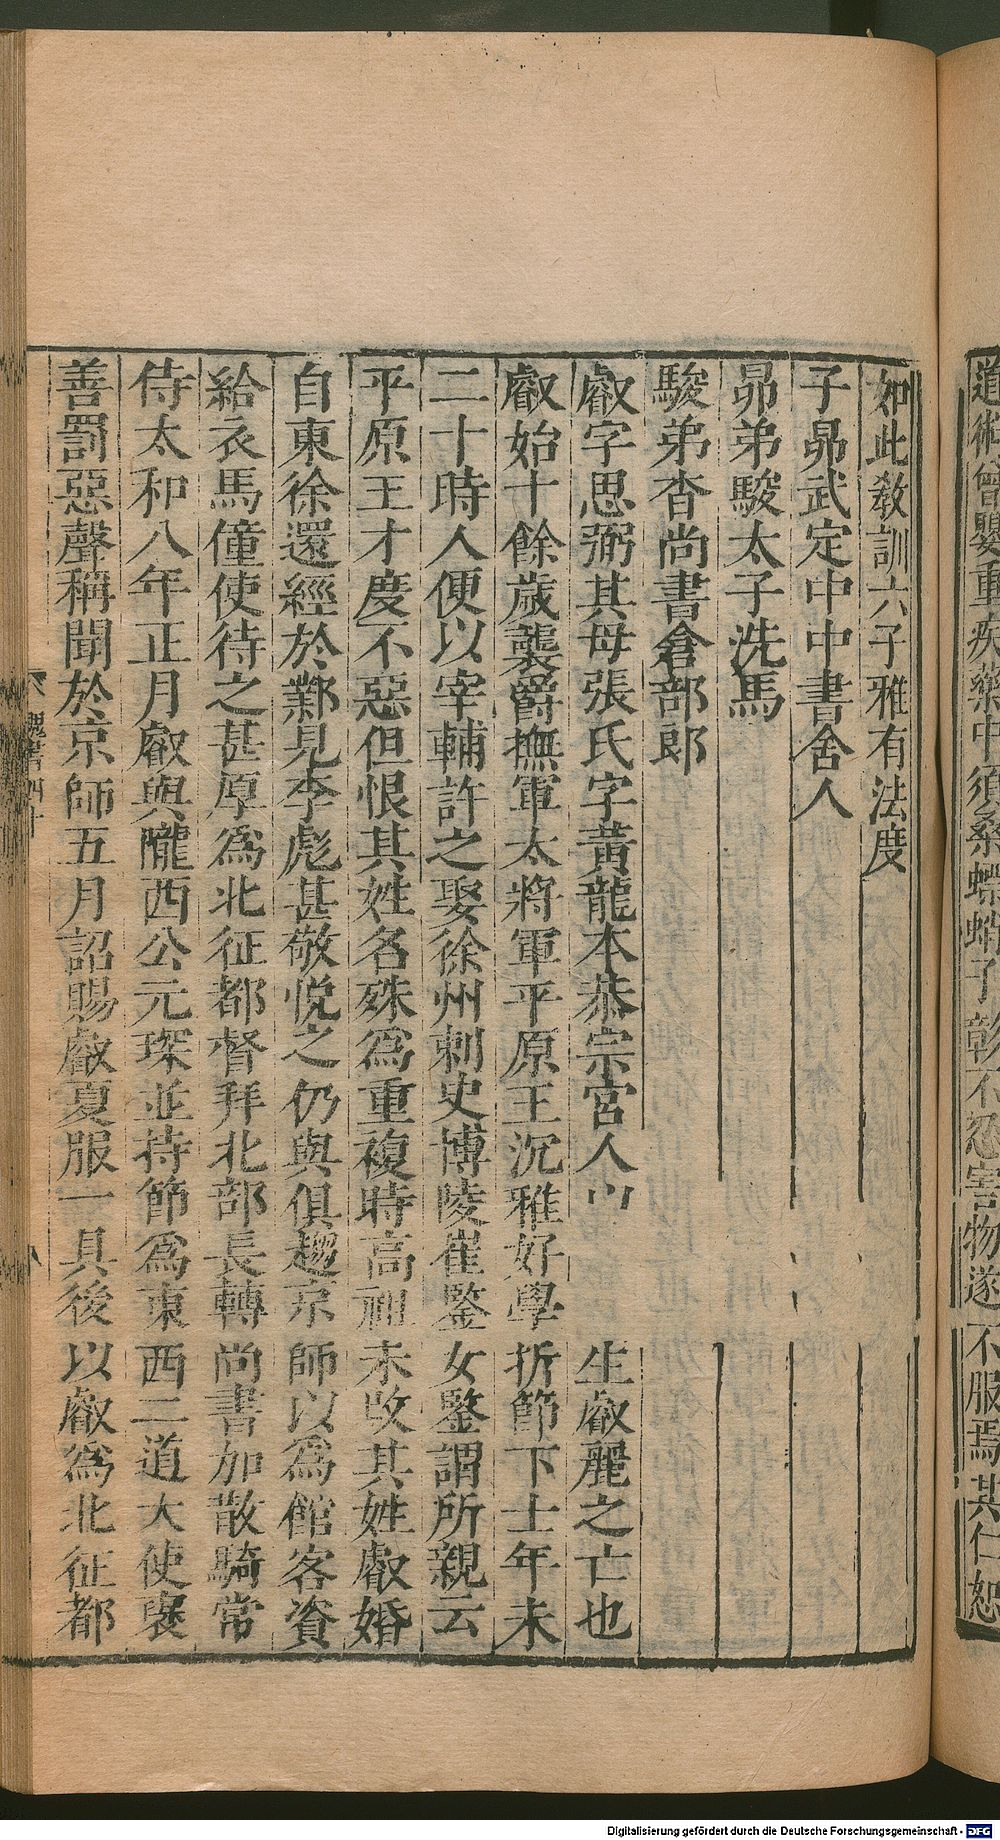 道術曾嬰重疾藥中須桑螵蛸子彰不忍害物遂不服焉其仁恕
如此敎訓六子雅有法度
子昴武定中中書舍人
昴弟駿太子洗馬
駿弟杳尚書倉部郎
叡字思弼其母張氏字黃龍本恭宗宮人 生叡麗之亡也
叡始十餘歲襲爵撫軍大將軍平原王沉雅好學折節下士年未
二十時人便以宰輔許之娶徐州刺史博陵崔鑒女鑒謂所親云
平原王才度不惡但恨其姓名殊爲重複時高祖未改其姓叡婚
自東徐還經於鄴見李彪甚敬悅之仍與俱趨京師以爲館客資
給衣馬僮使待之甚厚爲北征都督拜北部長轉尚書加散騎常
侍太和八年正月叡與隴西公元琛並持節爲東西二道大使襃
善罰惡聲稱聞於京師五月詔賜叡夏服一具後以叡爲北征都
魏書四十
Digitalisierung gefördert durch die Deutsche Forschungsgemeinschaft - DFG